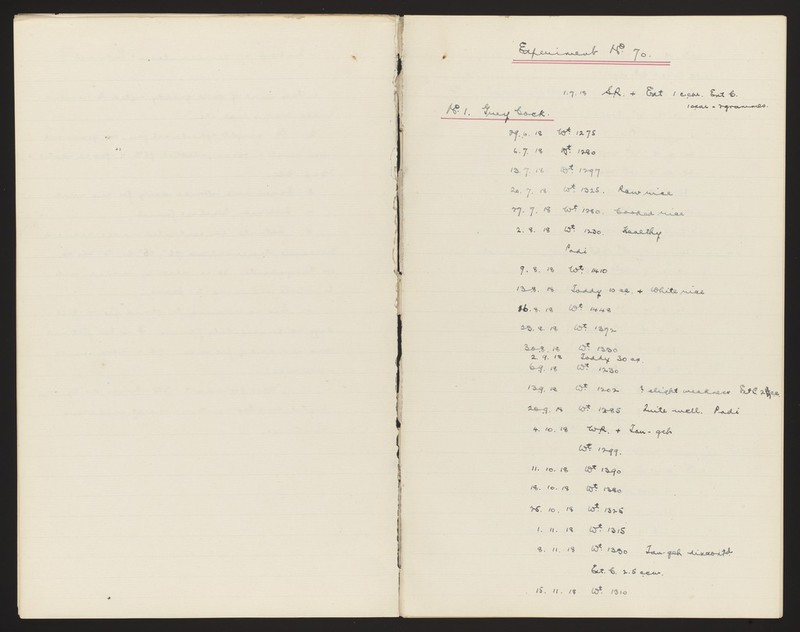 Experiment No 70.
1.7.18 S.R. + Ext 1 ccm. Ext C.
1 ccm =
No 1. Grey Cock.
29.6.18 Wt 1275
6.7.18 Wt 1280
13.7.18 Wt 1297
20.7.18 Wt 1325. Raw rice
27.7.18 Wt 1280. Cooked rice
2.8.18 Wt 1230. Healthy
Padi
9.8.18 Wt 1410
13.8.18 Toddy 10 cc. + White rice
16.8.18 Wt 1448
23.8.18 Wt 1392
30.8.18 Wt 1330
2.9.18 Toddy 30 cc.
6.9.18 Wt 1230
13.9.18 Wt 1202 ? slight weakness Ext C
20.9.18 Wt 1285 Quite well. Padi
4.10.18 W.R. + Tau-geh
Wt 1299.
11.10.18 Wt 1390
18.10.18 Wt 1380
25.10.18 Wt 1325
1.11.18 Wt 1315
8.11.18 Wt 1330 Tau-geh discontd
Ext. C. 2.5 ccm.
15.11.18 Wt 1310